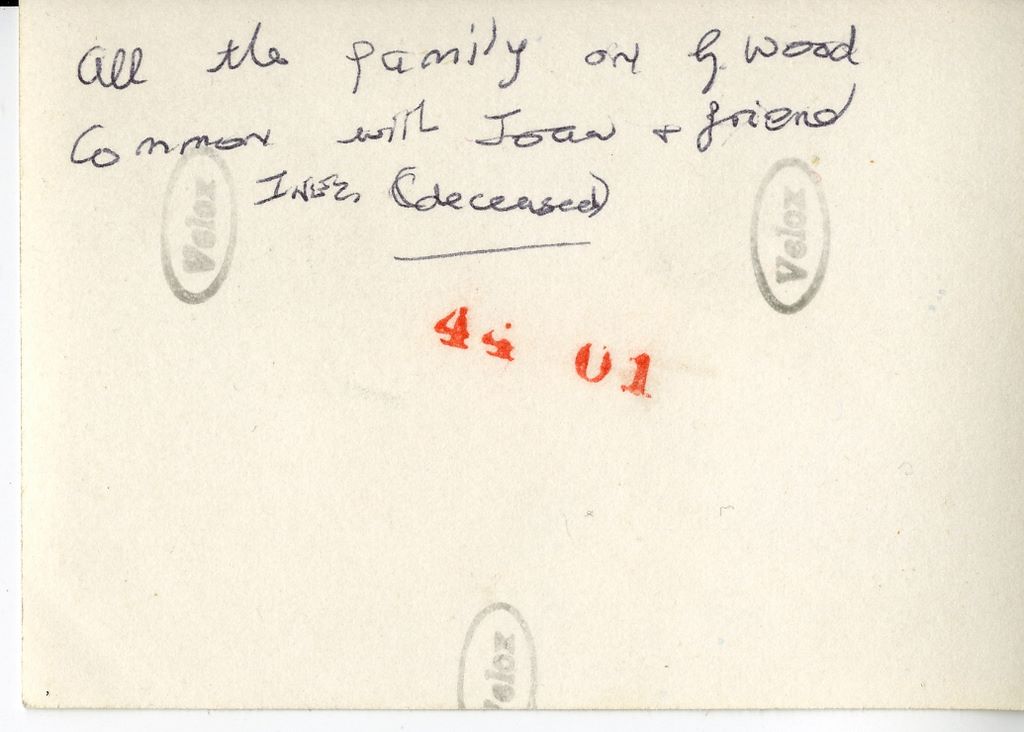 All the family on G wood
Common with Joan + friend
INEZ, (deceased)
Velox
Velox
44 01
Velox